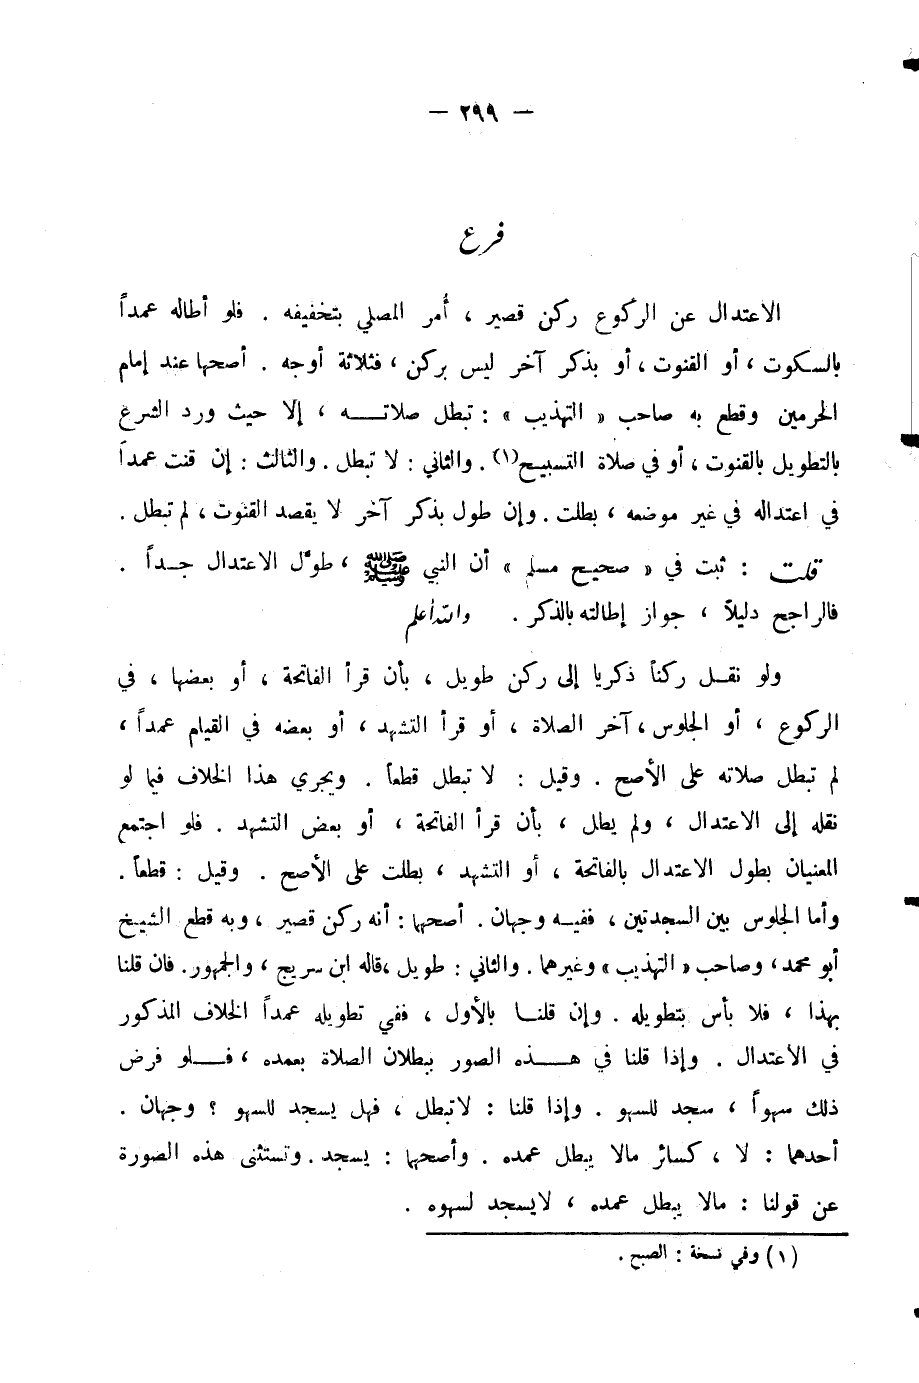 — ٢٩٩ —
فرع
الاعتدال عن الركوع ركن قصير ، أُمر المصلي بتخفيفه . فلو أطاله عمداً
بالسكوت ، أو القنوت ، أو بذكر آخر ليس بركن ، فثلاثة أوجه . أصحها عند إمام
الحرمين وقطع به صاحب « التهذيب » : تبطل صلاتـــه ، إلا حيث ورد الشرع
بالتطويل بالقنوت ، أو في صلاة التسبيح(١) . والثاني : لا تبطل . والثالث : إن قنت عمداً
في اعتداله في غير موضعه ، بطلت . وإن طول بذكر آخر لا يقصد القنوت ، لم تبطل .
قلت : ثبت في « صحيح مسلم » أن النبي ﷺ ، طوَّل الاعتدال جـداً .
فالراجح دليلاً ، جواز إطالته بالذكر . والله أعلم
ولو نقـل ركناً ذكريا إلى ركن طويل ، بأن قرأ الفاتحة ، أو بعضها ، في
الركوع ، أو الجلوس ، آخر الصلاة ، أو قرأ التشهد ، أو بعضه في القيام عمداً ،
لم تبطل صلاته على الأصح . وقيل : لا تبطل قطعاً . ويجري هذا الخلاف فيما لو
نقله إلى الاعتدال ، ولم يطل ، بأن قرأ الفاتحة ، أو بعض التشهد . فلو اجتمع
المعنيان بطول الاعتدال بالفاتحة ، أو التشهد ، بطلت على الأصح . وقيل : قطعاً .
وأما الجلوس بين السجدتين ، ففيـه وجهان . أصحها : أنه ركن قصير ، وبه قطع الشيخ
أبو محمد ، وصاحب « التهذيب » وغيرهما . والثاني : طويل ، قاله ابن سريج ، والجمهور . فان قلنا
بهذا ، فلا بأس بتطويله . وإن قلنـا بالأول ، ففي تطويله عمداً الخلاف المذكور
في الاعتدال . وإذا قلنا في هـــذه الصور ببطلان الصلاة بعمده ، فـــلو فرض
ذلك سهواً ، سجد للسهو . وإذا قلنا : لاتبطل ، فهل يسجد للسهو ؟ وجهان .
أحدهما : لا ، كسائر مالا يبطل عمده . وأصحها : يسجد . وتستثنى هذه الصورة
عن قولنا : مالا يبطل عمده ، لايسجد لسهوه .
(١) وفي نسخة : الصبح .